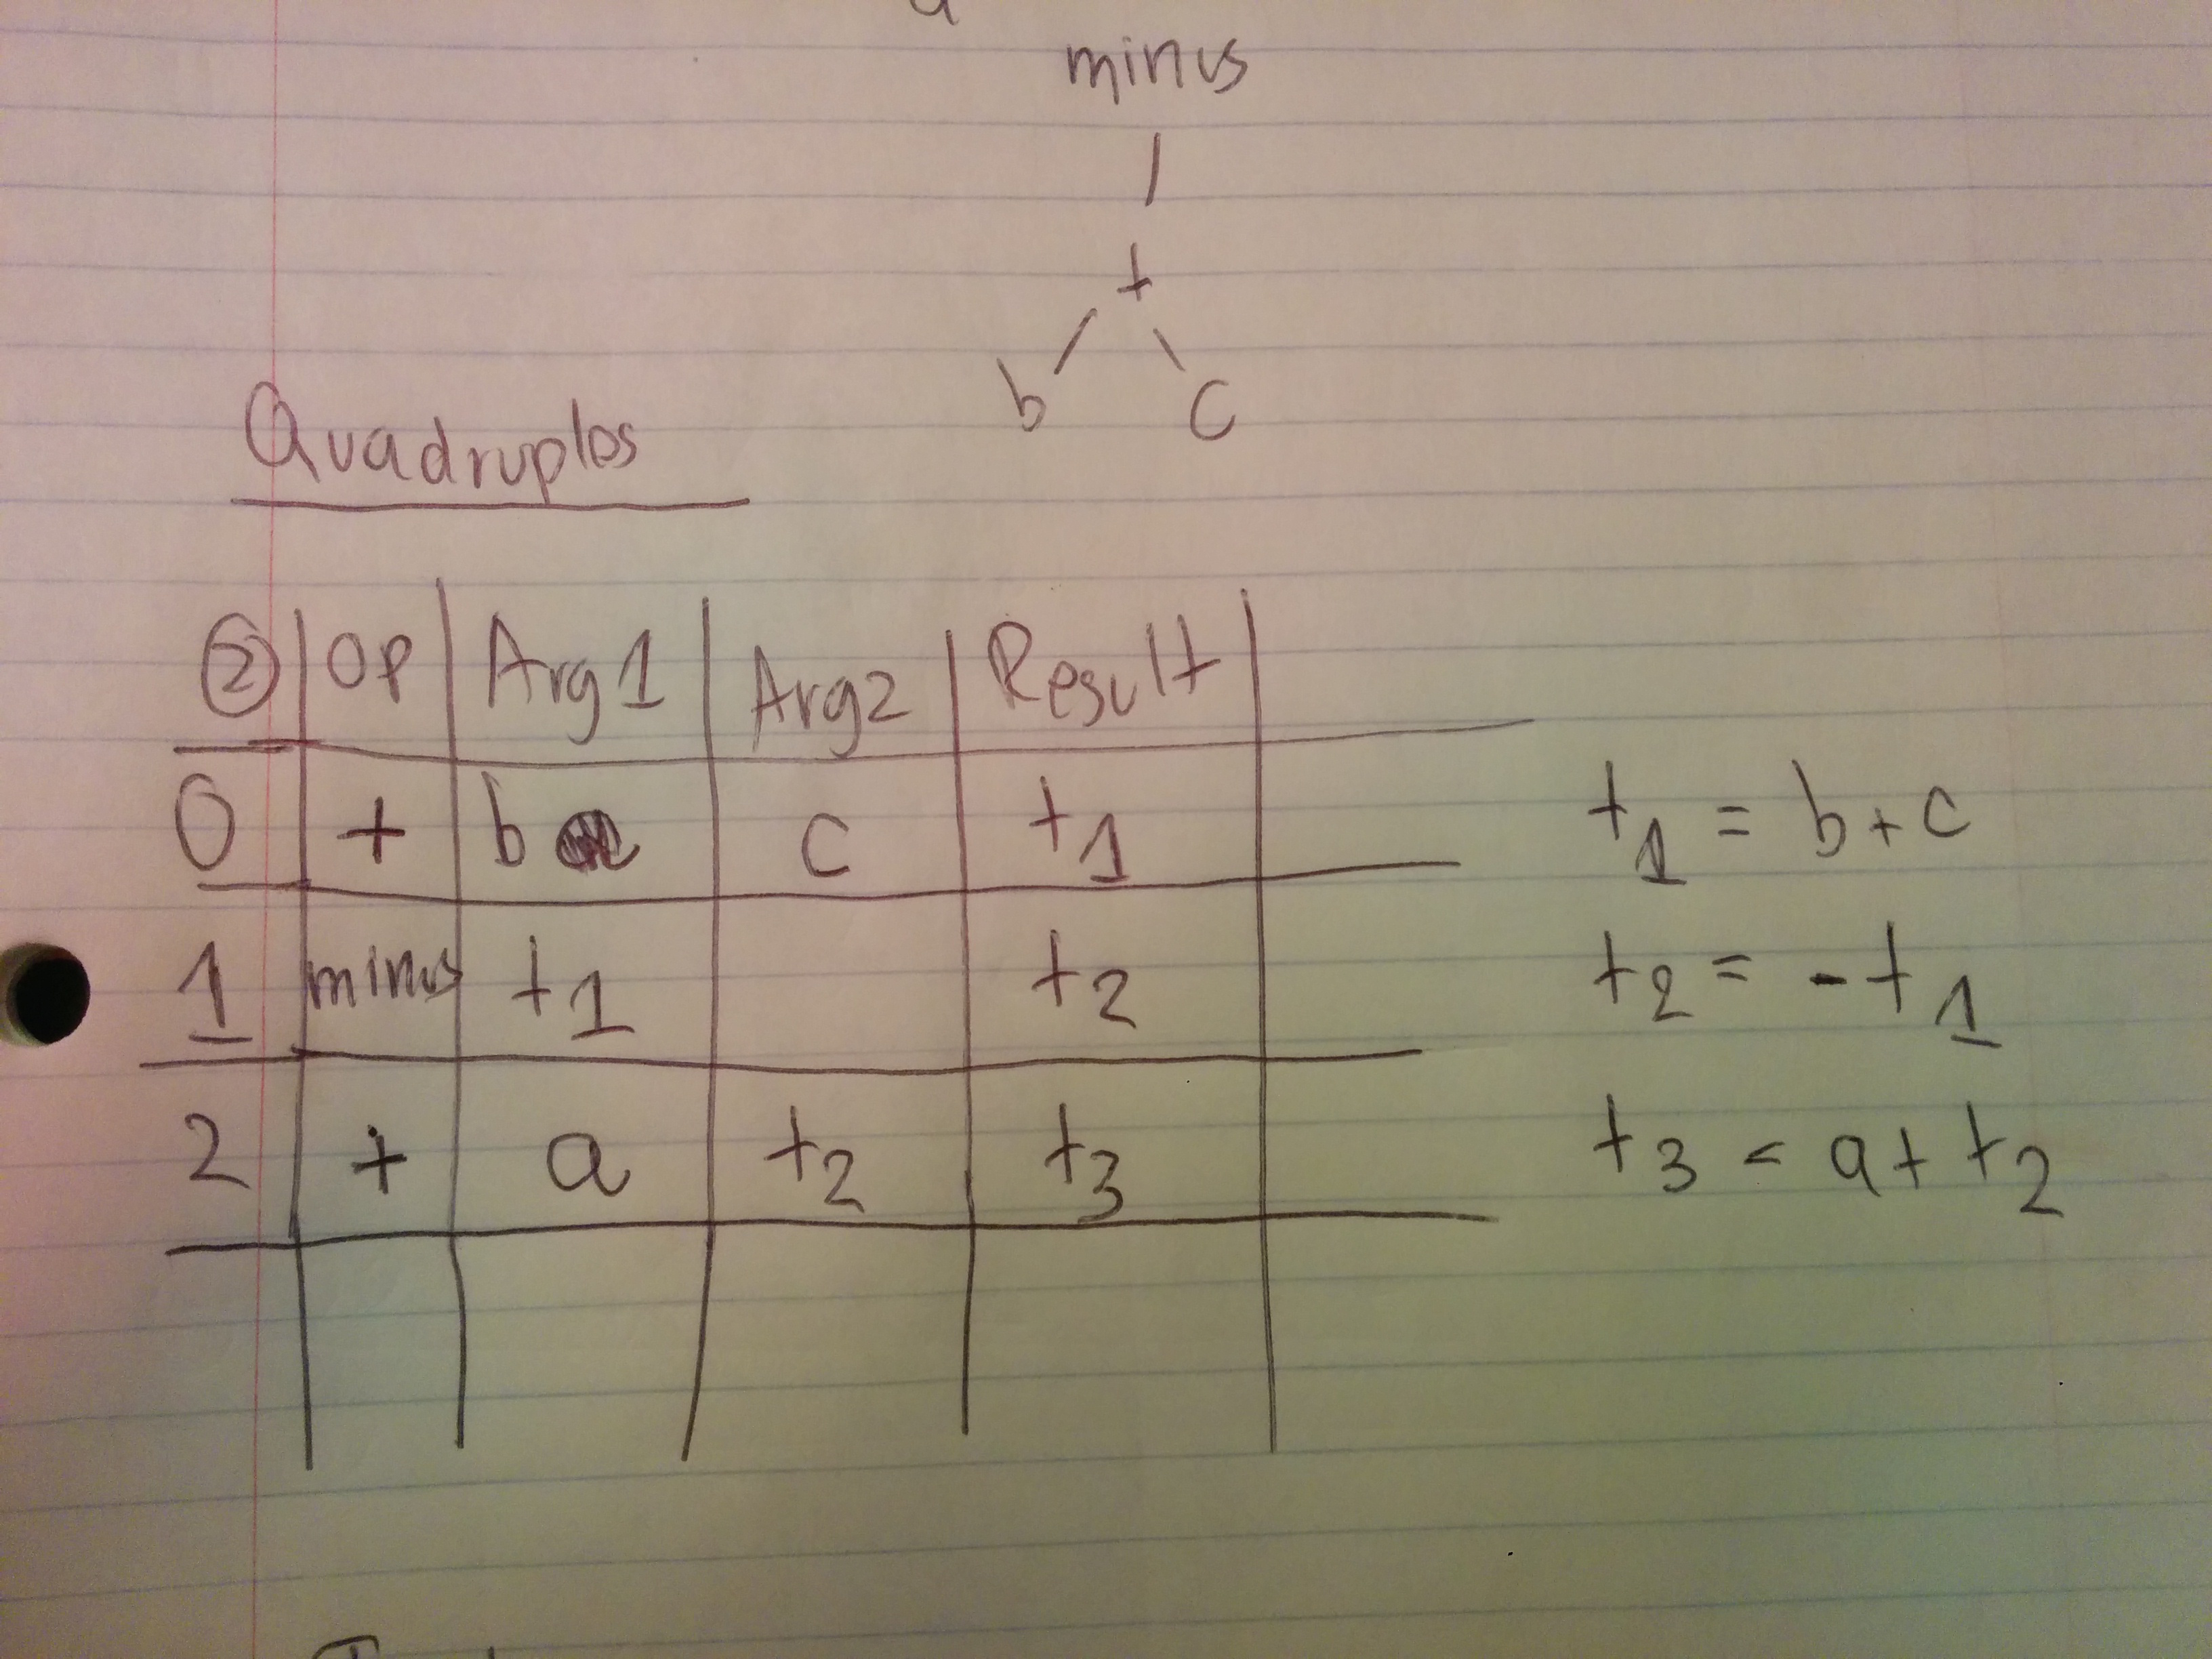 minus
+
b c
Quadruples
② Op Arg1 Arg2 Result
0 + b c t1 t1 = b + c
1 minus t1 t2 t2 = - t1
2 + a t2 t3 t3 = a + t2